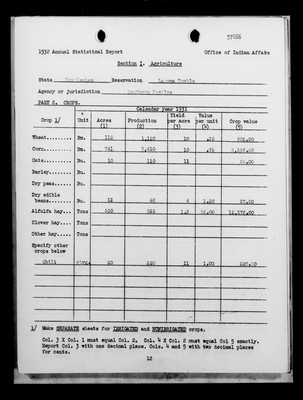 57586
1932 Annual Statistical Report Office of Indian Affairs
Section I. Agriculture
State New Mexico Reservation Laguna Pueblo
Agency or jurisdiction Southern Pueblos
PART 2. CROPS.
Calendar year 1931
Crop 1/ Unit Acres (1) Production (2) Yield per acre (3) Value per unit (4) Crop value (5)
Wheat........ Bu. 10
Corn......... Bu. 741 7,410 10 .75
Oats......... Bu. 10 110 11
Barley....... Bu.
Dry peas..... Bu.
Dry edible
beans........ Bu. 12 48 4 1.20 57.60
Alfalfa hay.. Tons 1.5
Clover hay... Tons
Other hay.... Tons
Specify other
crops below
Chili 11 1.00
1/ Make SEPARATE sheets for IRRIGATED and NONIRRIGATED crops.
Col. 3 X Col. 1 must equal Col. 2. Col. 4 X Col. 2 must equal Col 5 exactly.
Report Col. 3 with one decimal place. Cols. 4 and 5 with two decimal places
for cents.
12